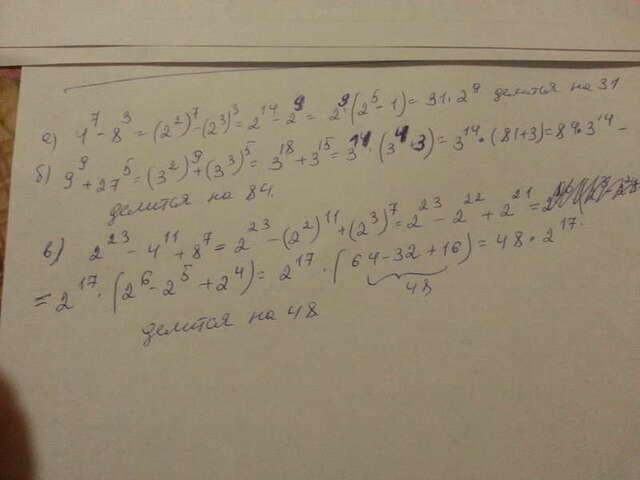 а) 4⁷ - 8³ = (2²)⁷ - (2³)³ = 2¹⁴ - 2⁹ = 2⁹(2⁵ - 1) = 31 · 2⁹ делится на 31
б) 9⁹ + 27⁵ = (3²)⁹ + (3³)⁵ = 3¹⁸ + 3¹⁵ = 3¹⁴ · (3⁴ + 3) = 3¹⁴ · (81 + 3) = 84 · 3¹⁴ -
делится на 84.
в) 2²³ - 4¹¹ + 8⁷ = 2²³ - (2²)¹¹ + (2³)⁷ = 2²³ - 2²² + 2²¹ =
= 2¹⁷ · (2⁶ - 2⁵ + 2⁴) = 2¹⁷ · (64 - 32 + 16) = 48 · 2¹⁷.
48
делится на 48